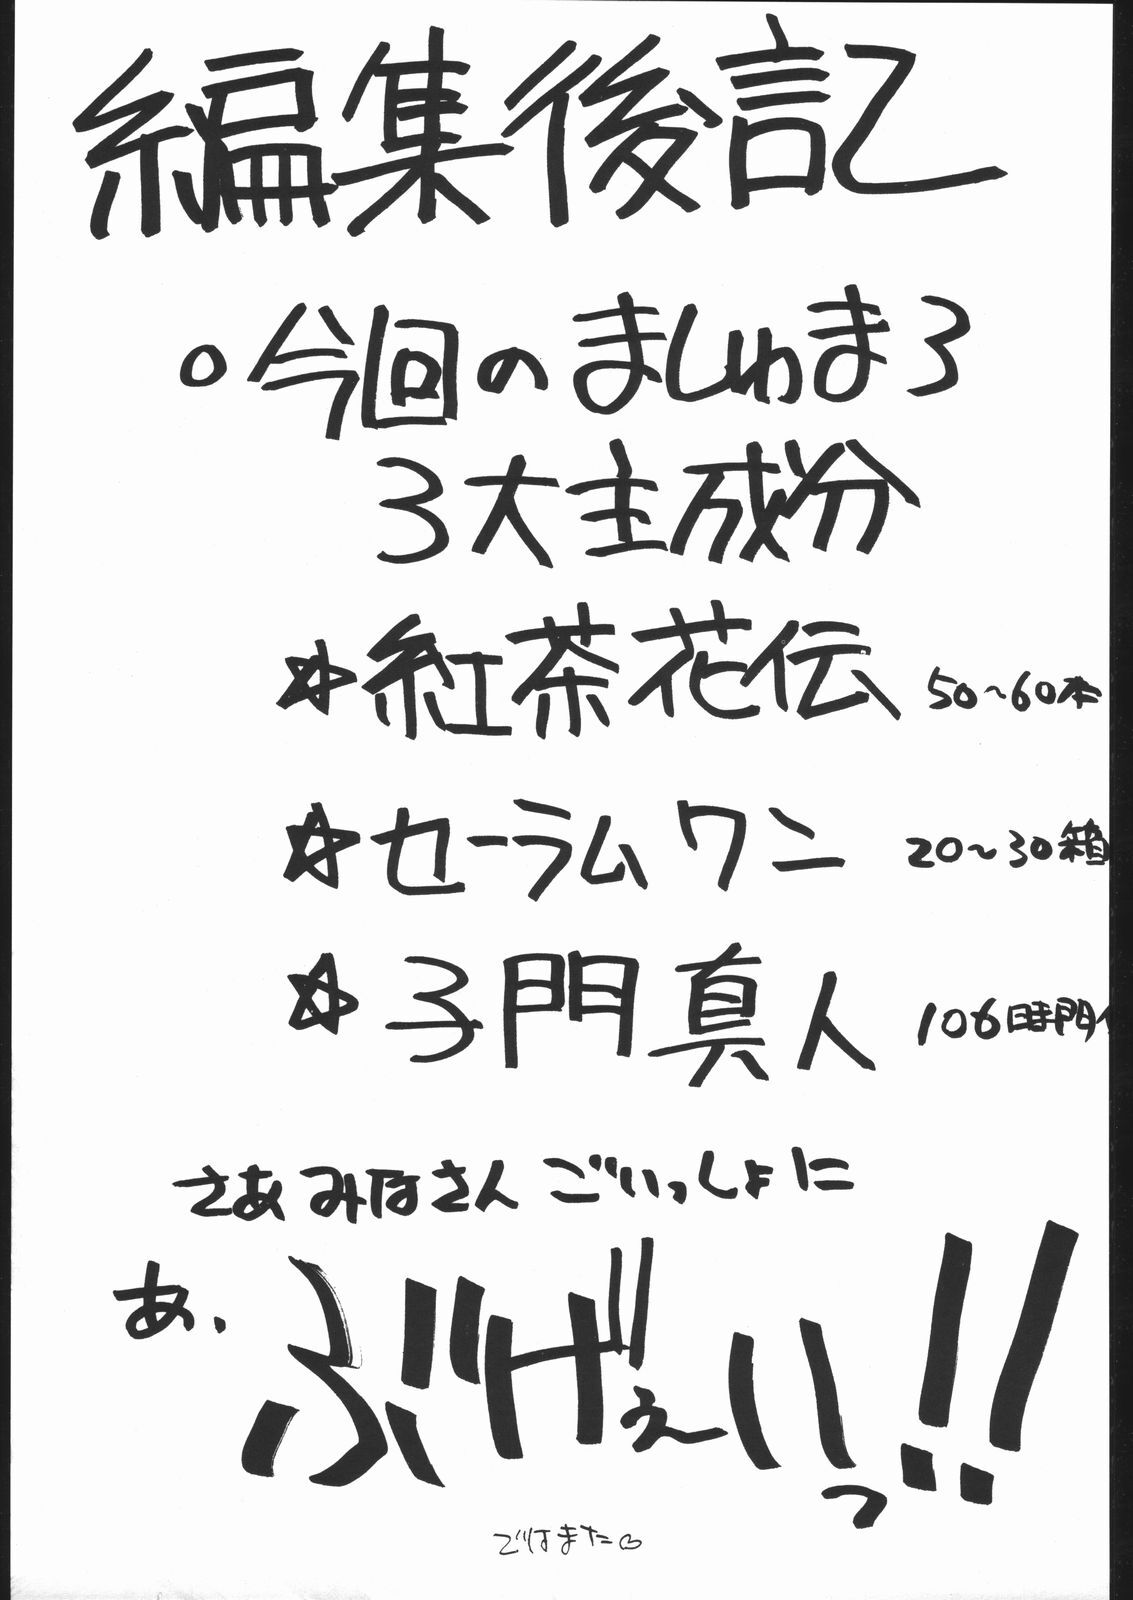 編集後記
○今回のましゅまろ
3大主成分
☆紅茶花伝 50〜60本
☆セーラムワン 20〜30箱
☆子門真人 106時間
さあみなさんごいっしょに
あ、ぶげぇいっ!!
ではまた♡